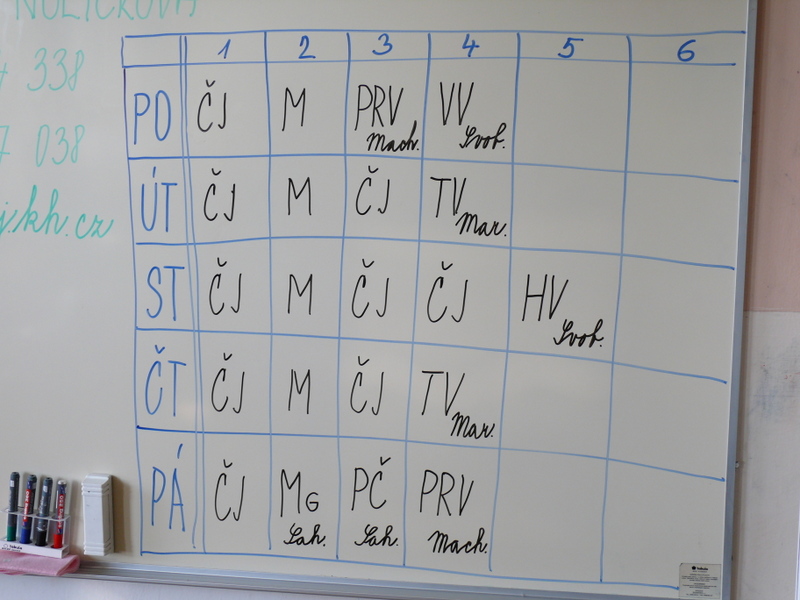 NOLÍČKOVÁ
338
038
j.kh.cz
1 2 3 4 5 6
PO ČJ M PRV Mach. VV Svob.
ÚT ČJ M ČJ TV Mar.
ST ČJ M ČJ ČJ HV Svob.
ČT ČJ M ČJ TV Mar.
PÁ ČJ MG Sah. PČ Sah. PRV Mach.